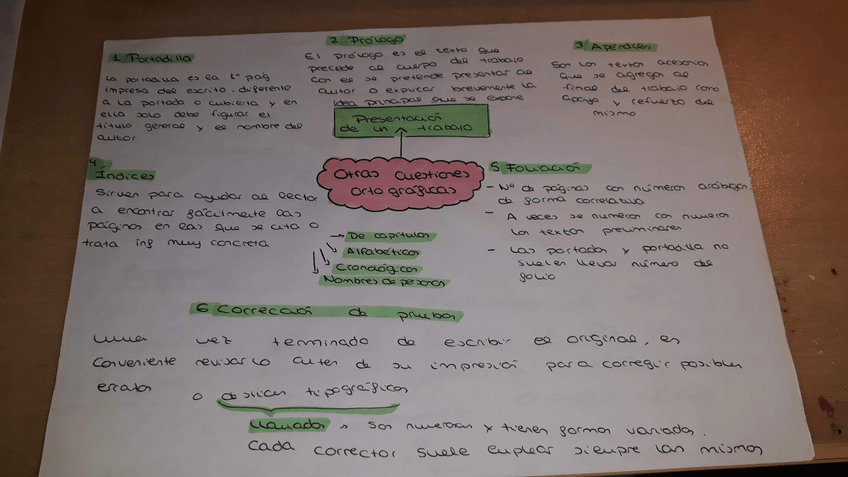 1. Portadilla
La portadilla es la 1ª pág
impresa del escrito, diferente
a la portada o cubierta y en
ella solo debe figurar el
título general y el nombre del
autor
2 Prólogo
El prólogo es el texto que
precede al cuerpo del trabajo
con el se pretende presentar al
autor o explicar brevemente la
idea principal que se expone
3 Apéndices
Son los textos accesorios
que se agregan al
final del trabajo como
apoyo y refuerzo del
mismo
Presentación
de un trabajo
Otras cuestiones
ortográficas
4
Índices
Sirven para ayudar al lector
a encontrar fácilmente las
páginas en las que se cita o
trata inf muy concreta
De capítulos
Alfabéticos
Cronológicos
Nombres de personas
5 Foliación
- Nº de páginas con números arábigos
de forma correlativa
- A veces se numeran con números
los textos preliminares
- Las portadas y portadilla no
suelen llevar número de
folio
6 Corrección de pruebas
Una vez terminado de escribir el original, es
conveniente revisarlo antes de su impresión para corregir posibles
erratas o deslices tipográficos
Llamadas > Son numerosas y tienen formas variadas.
Cada corrector suele emplear siempre las mismas